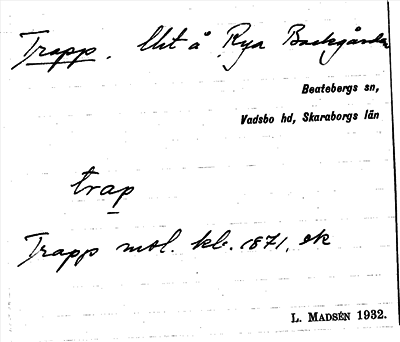 Trapp. Utt å Rya Backgården
Beatebergs sn,
Vadsbo hd, Skaraborgs län
trap
Trapp mol. kb. 1871. ek
L. MADSÉN 1932.